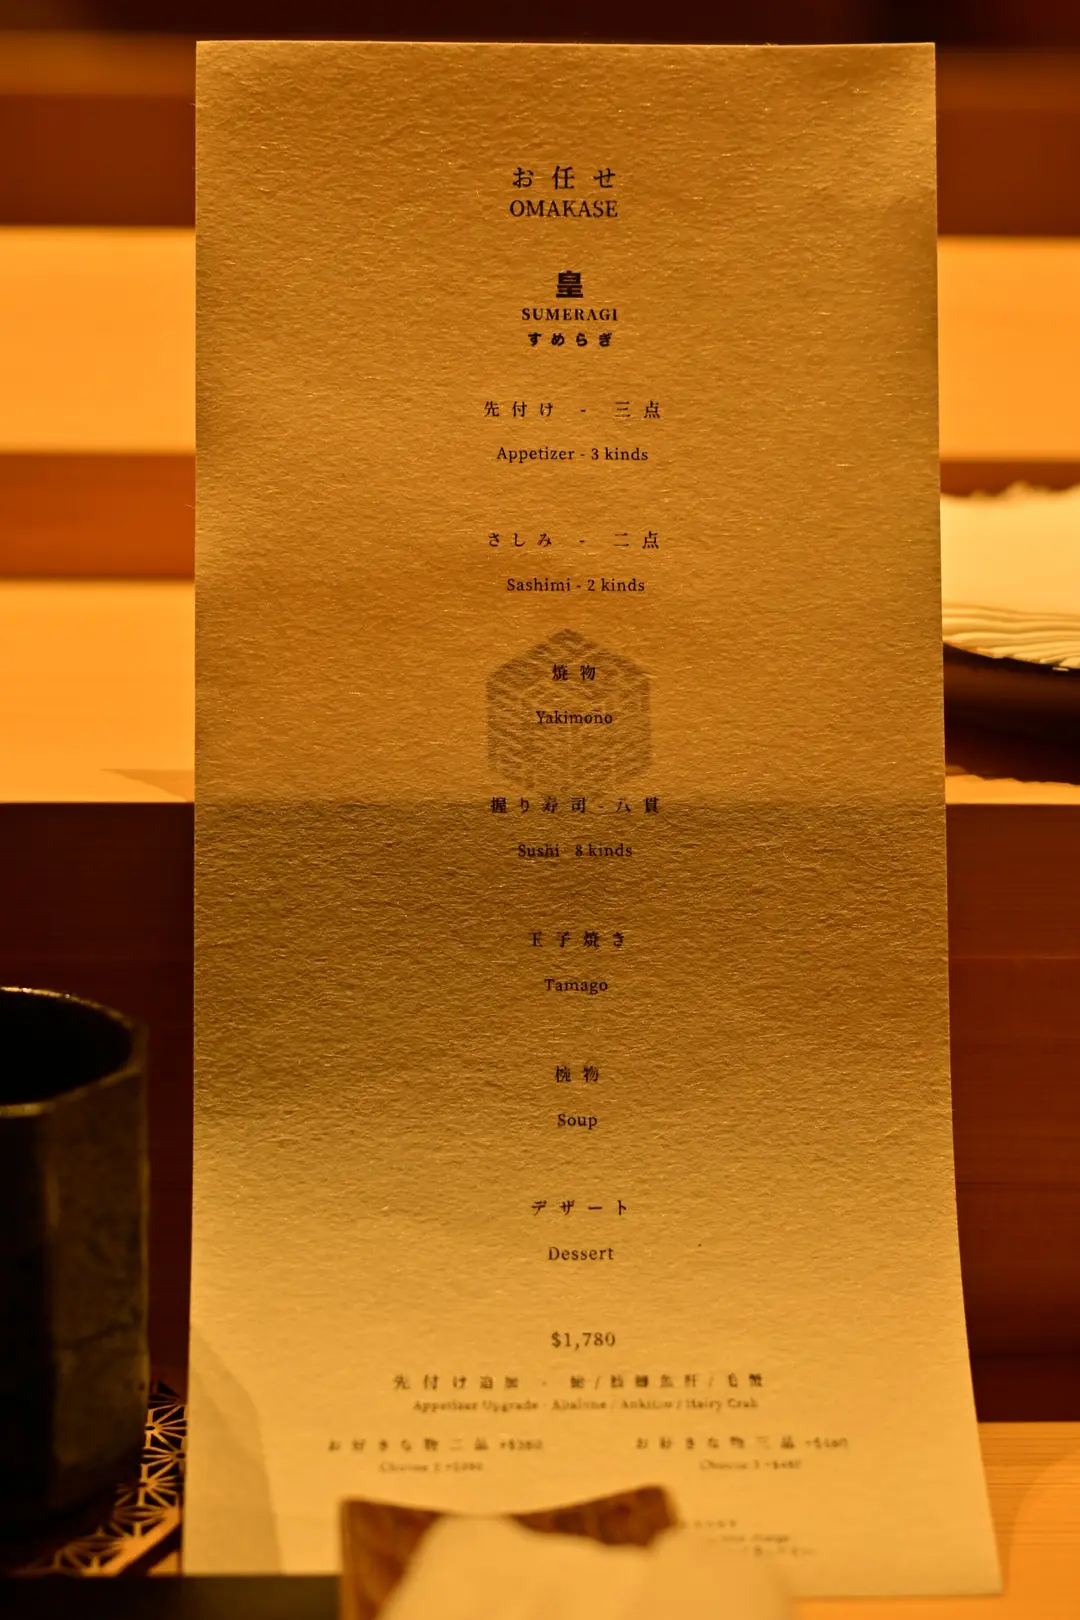 お任せ
OMAKASE
皇
SUMERAGI
すめらぎ
先付け - 三点
Appetizer - 3 kinds
さしみ - 二点
Sashimi - 2 kinds
焼物
Yakimono
握り寿司 - 八貫
Sushi - 8 kinds
玉子焼き
Tamago
椀物
Soup
デザート
Dessert
$1,780
先付け追加 - 鮑 / 鮟鱇魚肝 / 毛蟹
Appetizer Upgrade - Abalone / Ankimo / Hairy Crab
お好きな物二品
お好きな物三品
Choose 2
Choose 3